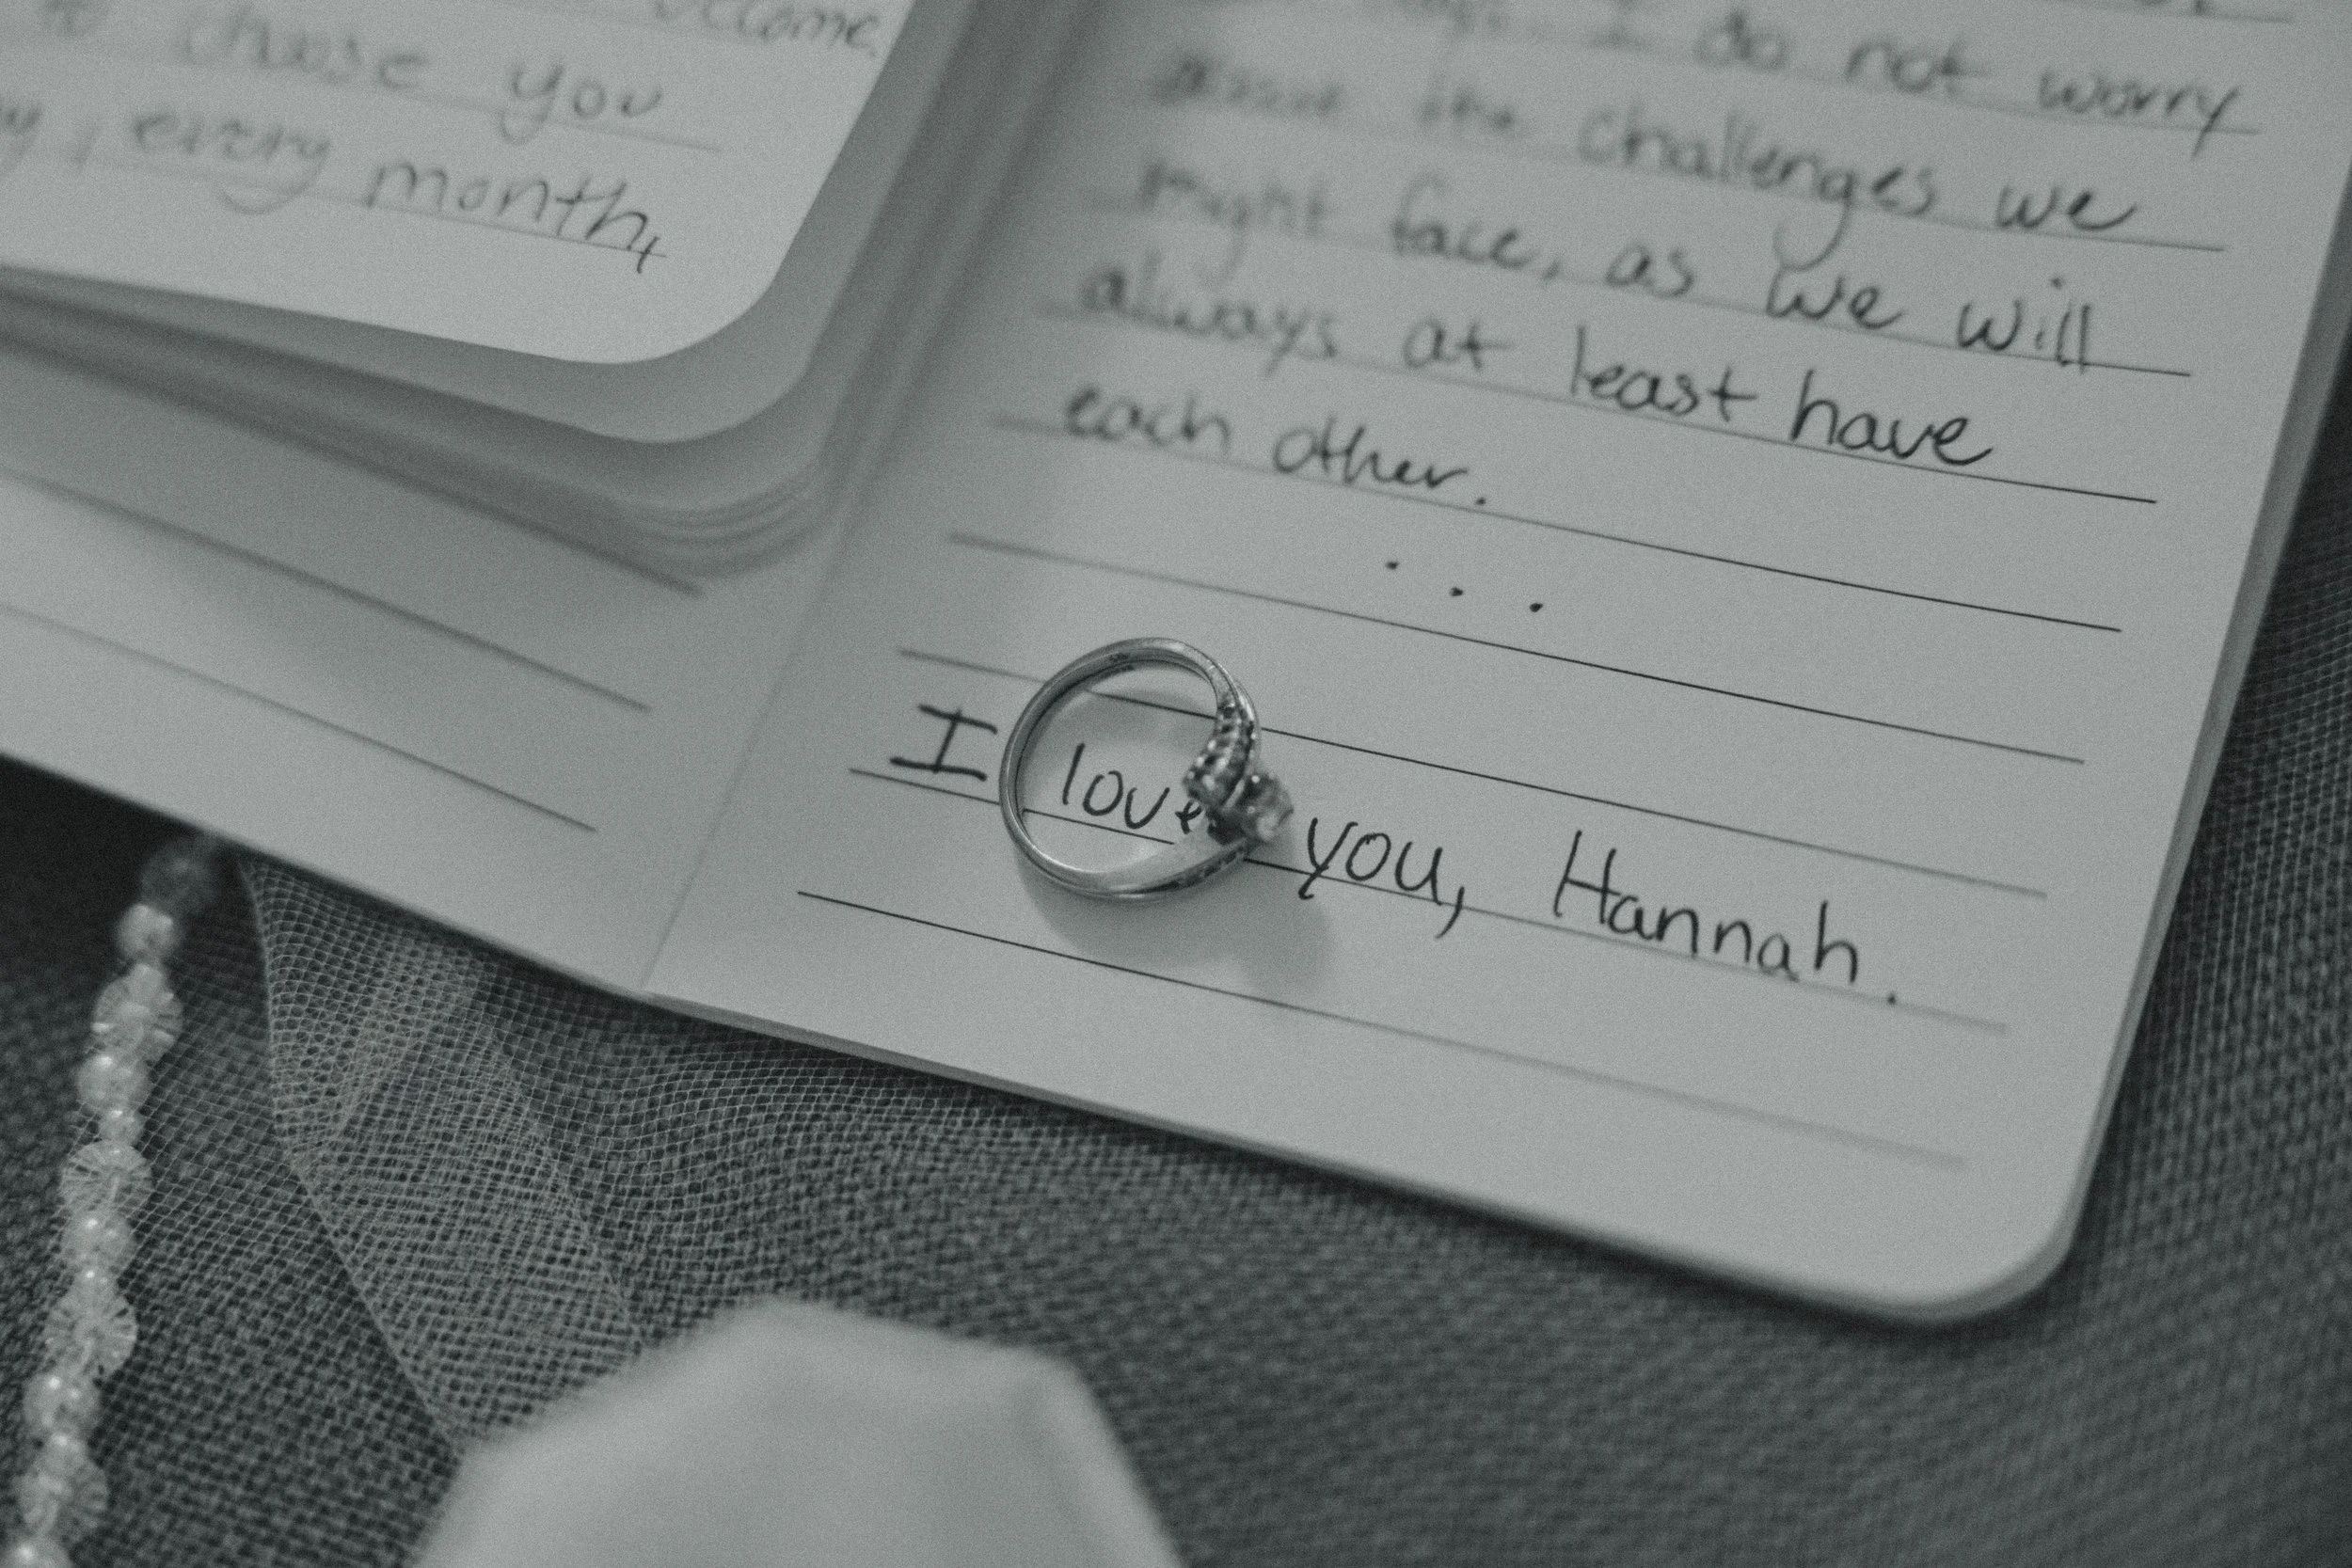 become,
choose you
, every month,
I do not worry
about the challenges we
might face, as we will
always at least have
each other.
...
I love you, Hannah.